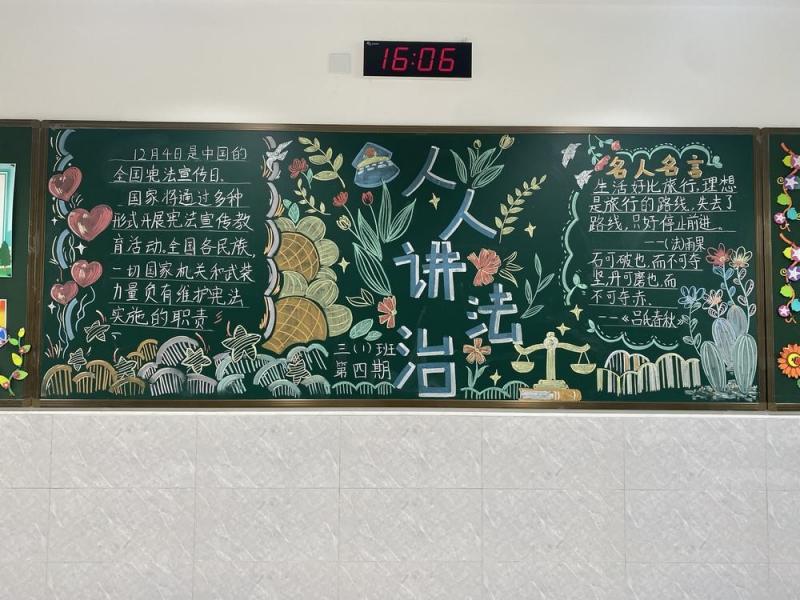 16:06
12月4日是中国的
全国宪法宣传日、
国家将通过多种
形式开展宪法宣传教
育活动.全国各民族,
一切国家机关和武装
力量负有维护宪法
实施的职责
三(1)班
第四期
人人讲法治
名人名言
生活好比旅行,理想
是旅行的路线,失去了
路线,只好停止前进。
——(法)雨果
石可破也,而不可夺
坚,丹可磨也,而
不可夺赤.
——《吕氏春秋》